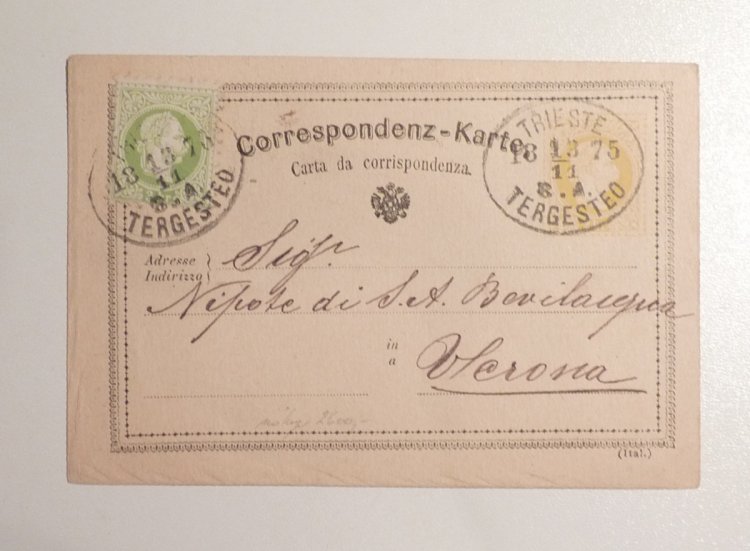 Correspondenz-Karte
Carta da corrispondenza.
TRIESTE
18 13 75
11
S. A.
TERGESTEO
18 13 75
11
S. A.
TERGESTEO
Adresse
Indirizzo
Sigr.
Nipote di S. A. Bevilacqua
in
a
Verona
2600,-
(Ital.)